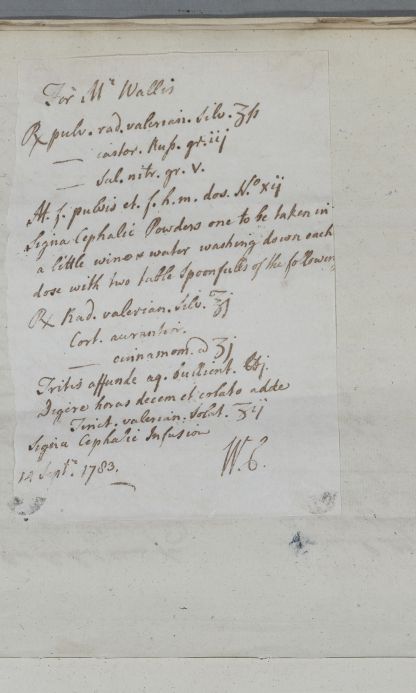 For Mr Wallis
℞ pulv. rad. valerian. silv. ʒſs
— castor. Russ. gr. iij
— Sal. nitr. gr. v.
M. f. pulvis et. f. h. m. dos. No. xij
Signa Cephalic Powders one to be taken in
a little wine & water washing down each
dose with two table spoonfulls of the following
℞ Rad. valerian. silv. ℥j
Cort. aurantior.
— cinnamom. a ʒj
Tritis affunde aq. bullient. ℔j.
Digere horas decem et colato adde
Tinct. valerian. volat. ℥ij
Signa Cephalic Infusion
12 Sept. 1783.
W. C.